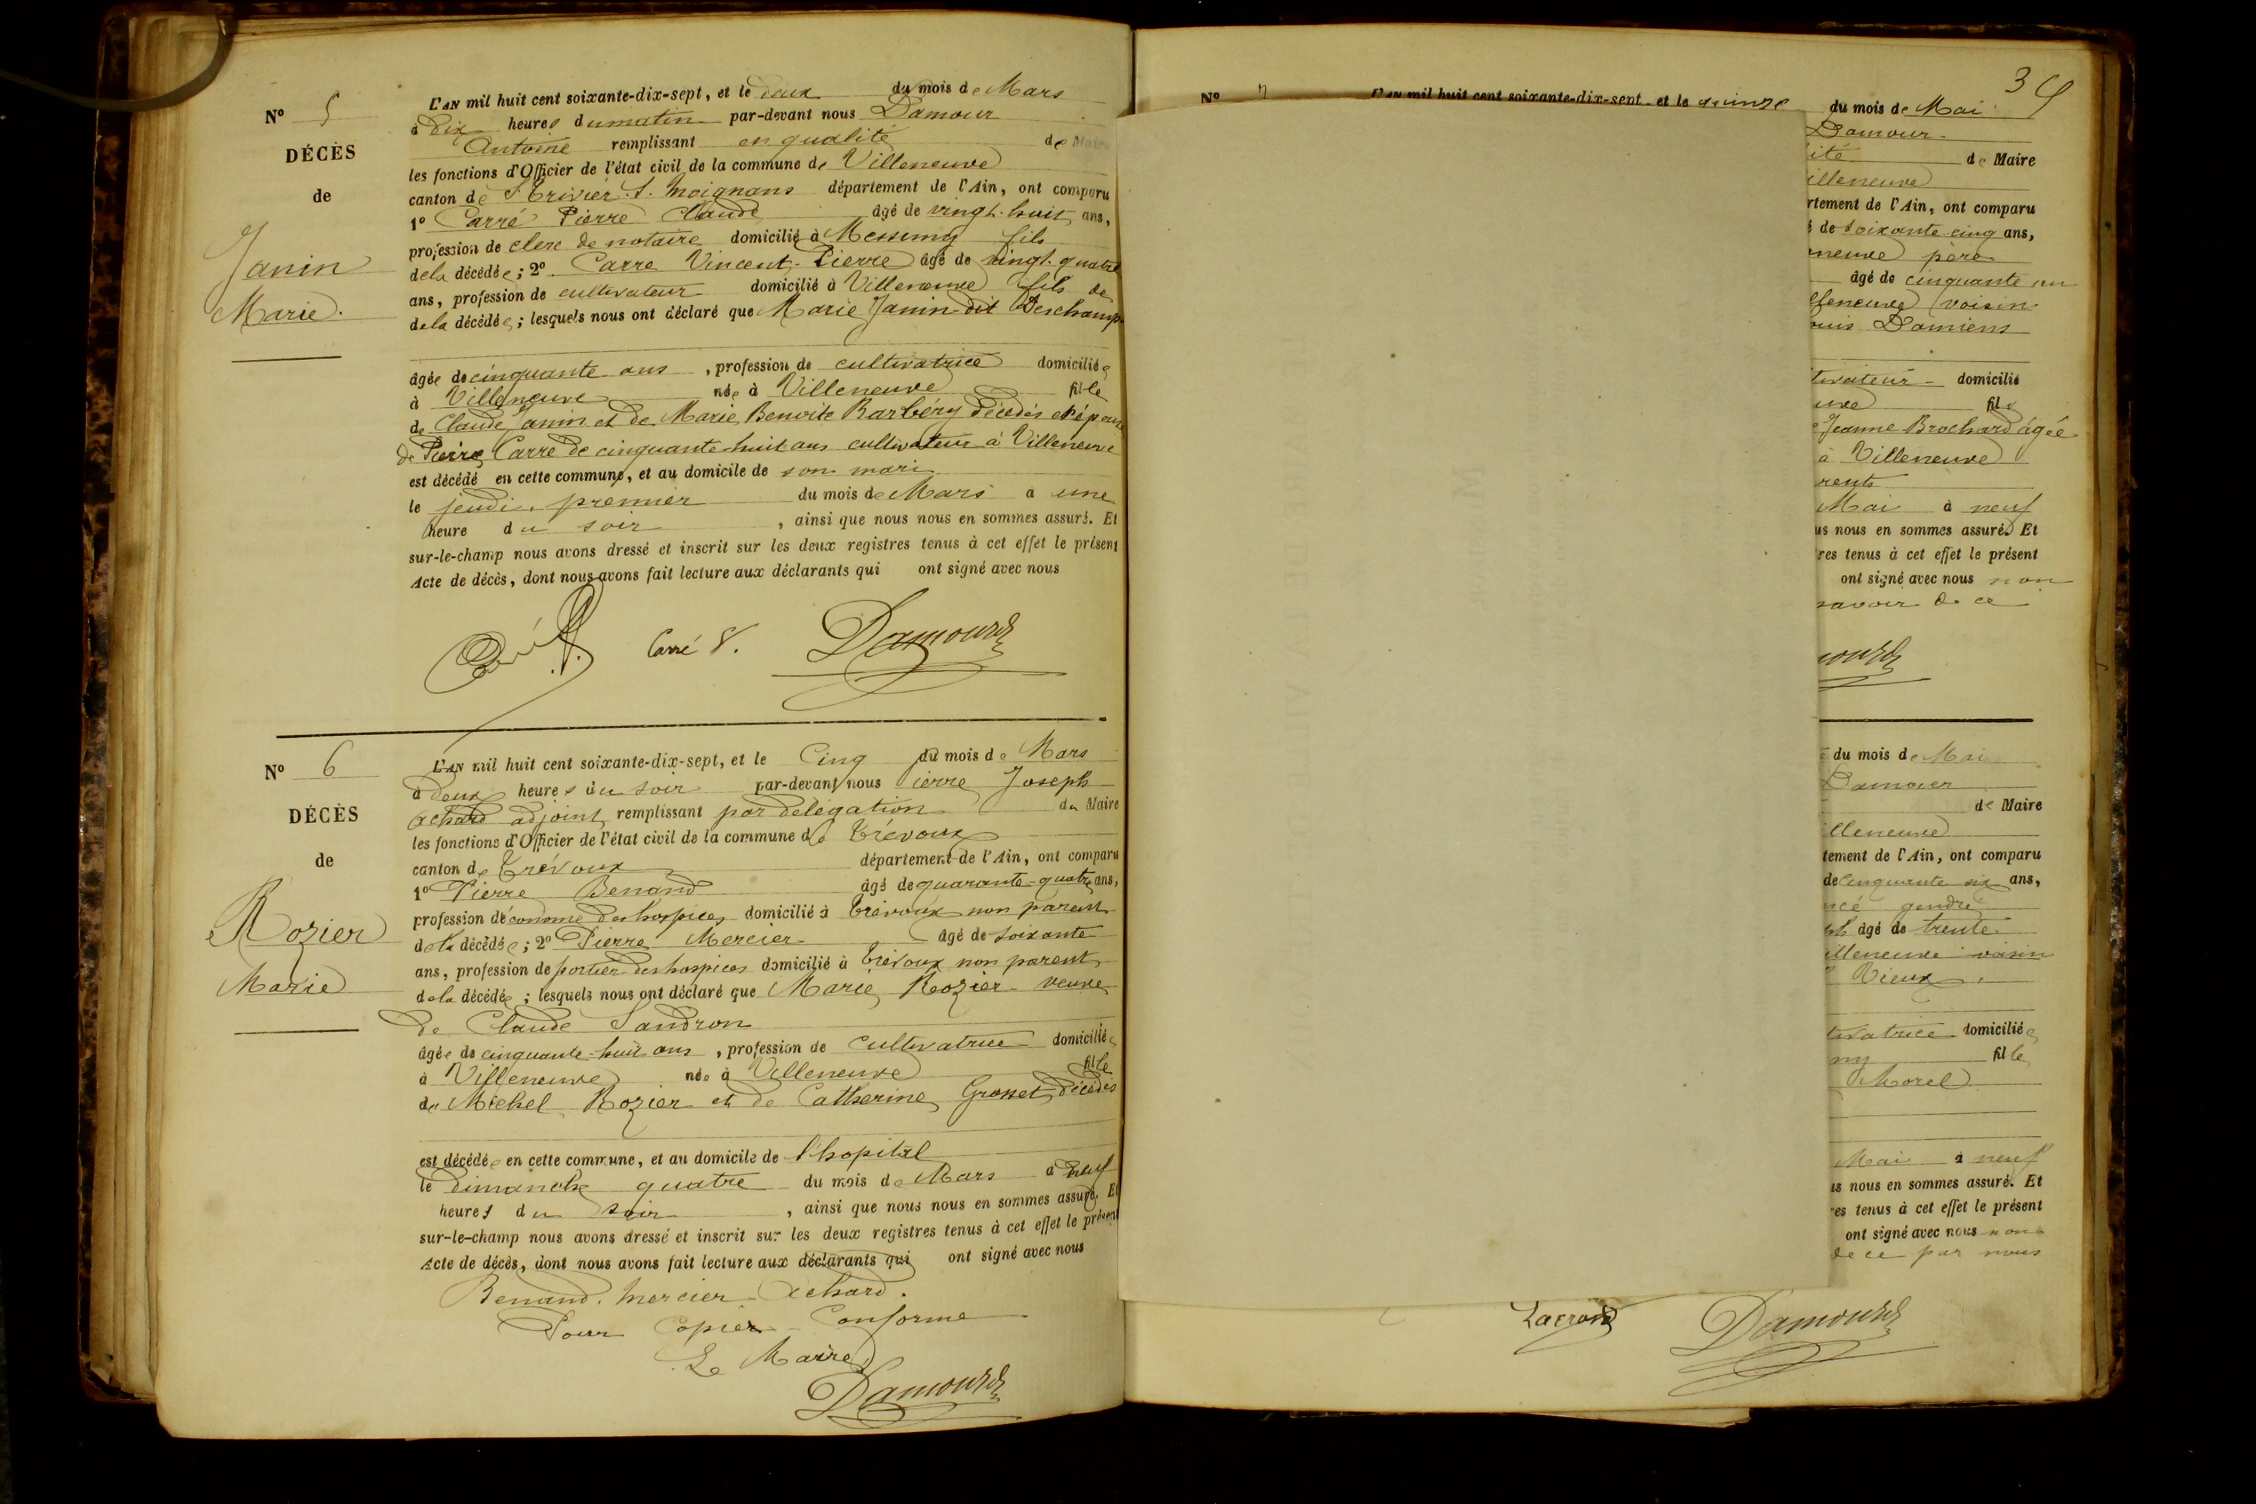 N° 5
DÉCÈS
de
Janin
Marie.
L'AN mil huit cent soixante-dix-sept, et le deux du mois de Mars
à dix heures du matin par-devant nous Damour
Antoine remplissant en qualité de Maire
les fonctions d'Officier de l'état civil de la commune de Villeneuve
canton de St Trivier S. Moignans département de l'Ain, ont comparu
1° Carré Pierre Claude âgé de vingt-huit ans,
profession de clerc de notaire domicilié à Messimy fils
de la décédée; 2° Carre Vincent-Pierre âgé de vingt-quatre
ans, profession de cultivateur domicilié à Villeneuve fils de
de la décédée; lesquels nous ont déclaré que Marie Janin dit Deschamps
âgée de cinquante ans, profession de cultivatrice domiciliée
à Villeneuve née à Villeneuve fille
de Claude Janin et de Marie Benoite Barbéry décédés et épouse
de Pierre Carre de cinquante-huit ans cultivateur à Villeneuve
est décédé en cette commune, et au domicile de son mari
le jeudi premier du mois de Mars a une
heure du soir, ainsi que nous nous en sommes assuré. Et
sur-le-champ nous avons dressé et inscrit sur les deux registres tenus à cet effet le présent
Acte de décès, dont nous avons fait lecture aux déclarants qui ont signé avec nous
Carré V. Damour
N° 6
DÉCÈS
de
Rozier
Marie
L'AN mil huit cent soixante-dix-sept, et le Cinq du mois de Mars
à deux heures du soir par-devant nous Pierre Joseph
Achard adjoint remplissant par délégation du Maire
les fonctions d'Officier de l'état civil de la commune de Trévoux
canton de Trévoux département de l'Ain, ont comparu
1° Pierre Benand âgé de quarante-quatre ans,
profession d'économe des hospices domicilié à Trévoux non parent
de la décédée; 2° Pierre Mercier âgé de soixante
ans, profession de portier des hospices domicilié à Trévoux non parent
de la décédée; lesquels nous ont déclaré que Marie Rozier veuve
de Claude Sandron
âgée de cinquante-huit ans, profession de Cultivatrice domiciliée
à Villeneuve née à Villeneuve fille
de Michel Rozier et de Catherine Grosset décédés
est décédée en cette commune, et au domicile de l'hopital
le dimanche quatre du mois de Mars à neuf
heures du soir, ainsi que nous nous en sommes assuré. Et
sur-le-champ nous avons dressé et inscrit sur les deux registres tenus à cet effet le présent
Acte de décès, dont nous avons fait lecture aux déclarants qui ont signé avec nous
Benand. Mercier Achard.
Pour Copie Conforme
Le Maire
Damour
N° 7
L'AN mil huit cent soixante-dix-sept, et le quinze du mois de Mai
Damour
ité de Maire
illeneuve
rtement de l'Ain, ont comparu
é de soixante cinq ans,
neuve père
âgé de cinquante un
leneuve voisin
ouis Damiens
tivateur domicilié
uve fils
Jeanne Brochard âgée
à Villeneuve
rents
Mai à neuf
us nous en sommes assuré. Et
res tenus à cet effet le présent
ont signé avec nous non
savoir de ce
mour
du mois de Mai
Damour
de Maire
illeneuve
tement de l'Ain, ont comparu
de cinquante six ans,
ncé gendre
ph âgé de trente
illeneuve voisin
Rieux
tivatrice domiciliée
ny fille
Morel
Mai à neuf
us nous en sommes assuré. Et
res tenus à cet effet le présent
ont signé avec nous non
de ce par nous
Lacrond Damour